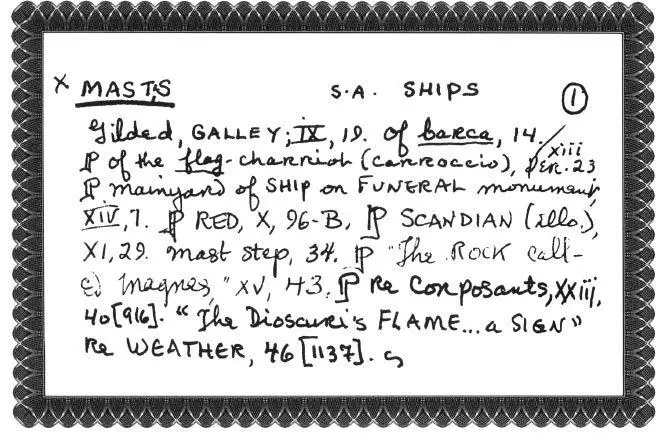 x MASTS S.A. SHIPS 1
Gilded, GALLEY; IX, 19. of barca, 14.
P of the flag-charriot (carroccio), xiii per. 23
P mainyard of SHIP on FUNERAL monument,
XIV, 7. P RED, X, 96-B. P SCANDIAN (illo.),
XI, 29. mast step, 34. P "The ROCK call-
ed Magnes," XV, 43. P Re Corposants, XXiij,
40[916]. "The Dioscuri's FLAME...a SIGN"
Re WEATHER, 46[1137].